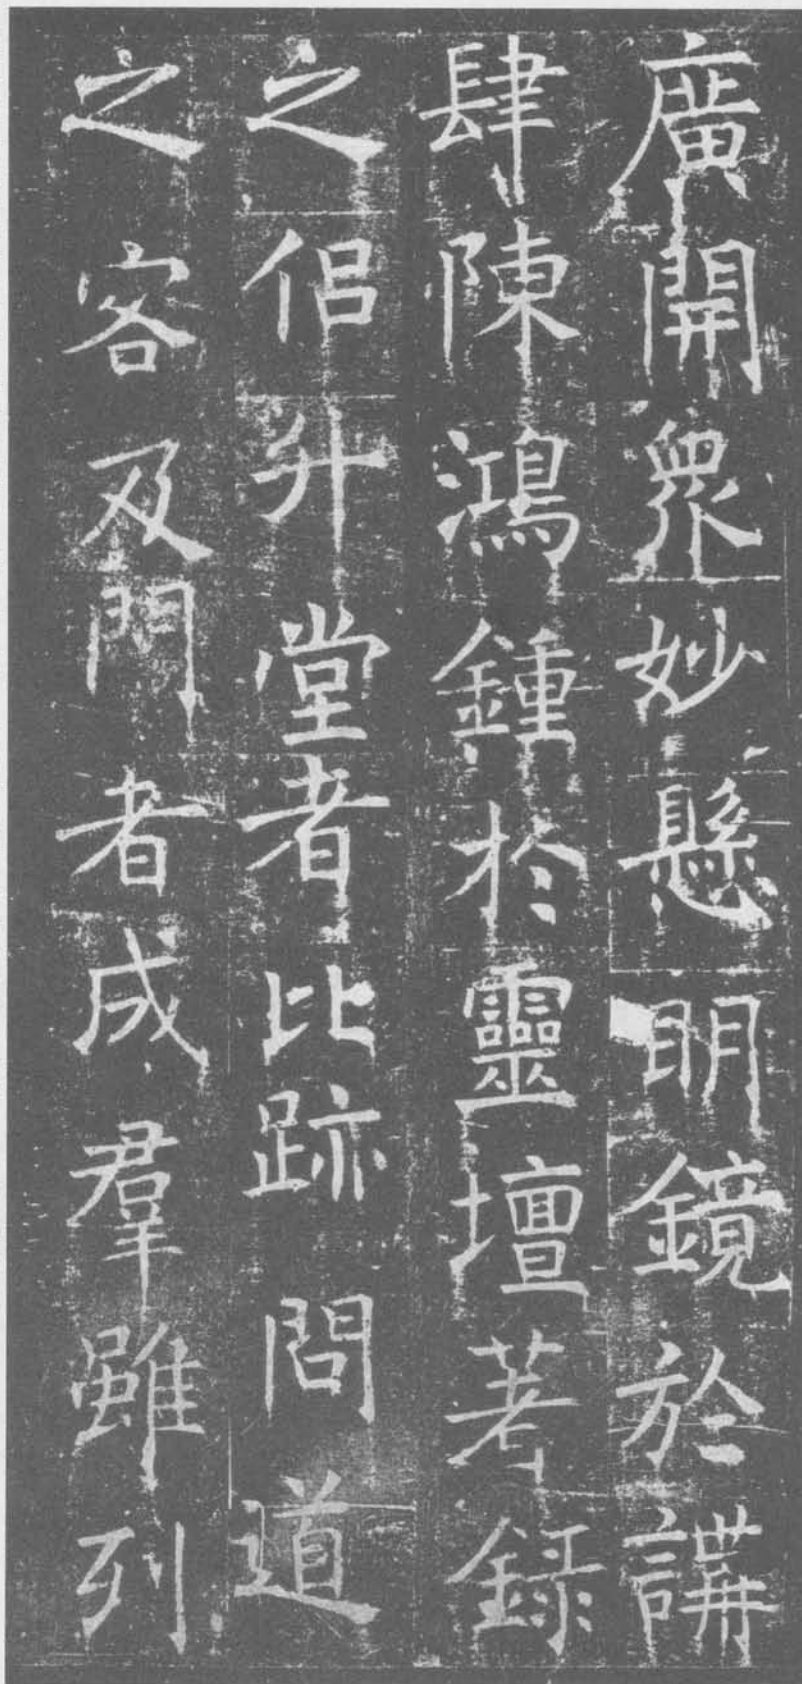 廣開眾妙懸明鏡於講
肆陳鴻鍾於靈壇著錄
之侶升堂者比跡問道
之客及門者成羣雖列